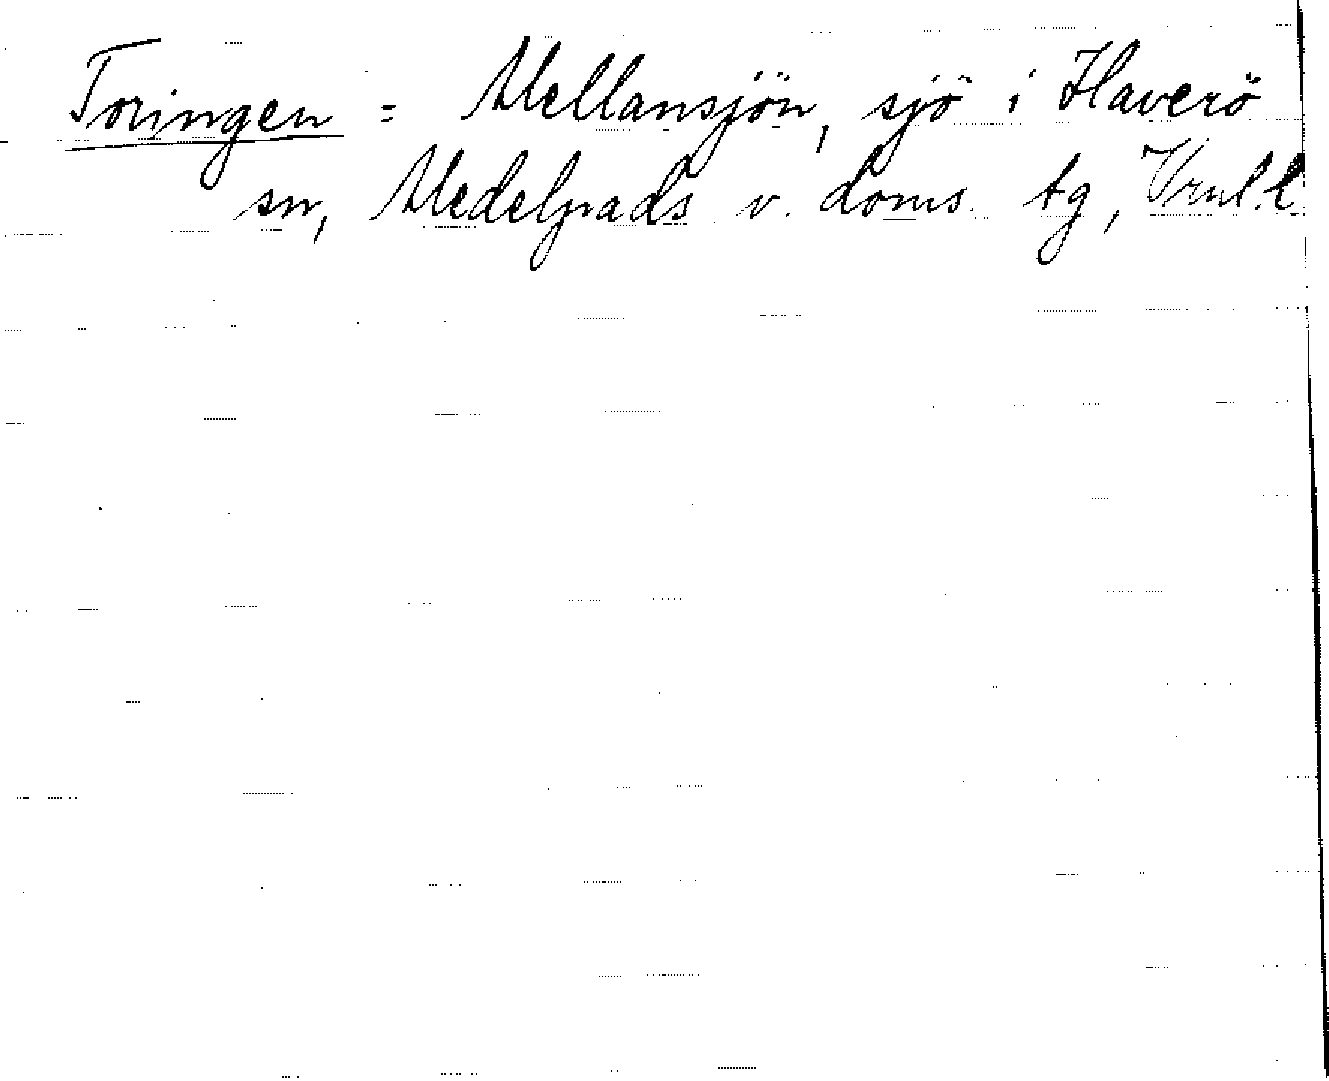 Toringen = Mellansjön, sjö i Haverö
sn, Medelpads v. doms. tg, Vrnl. l